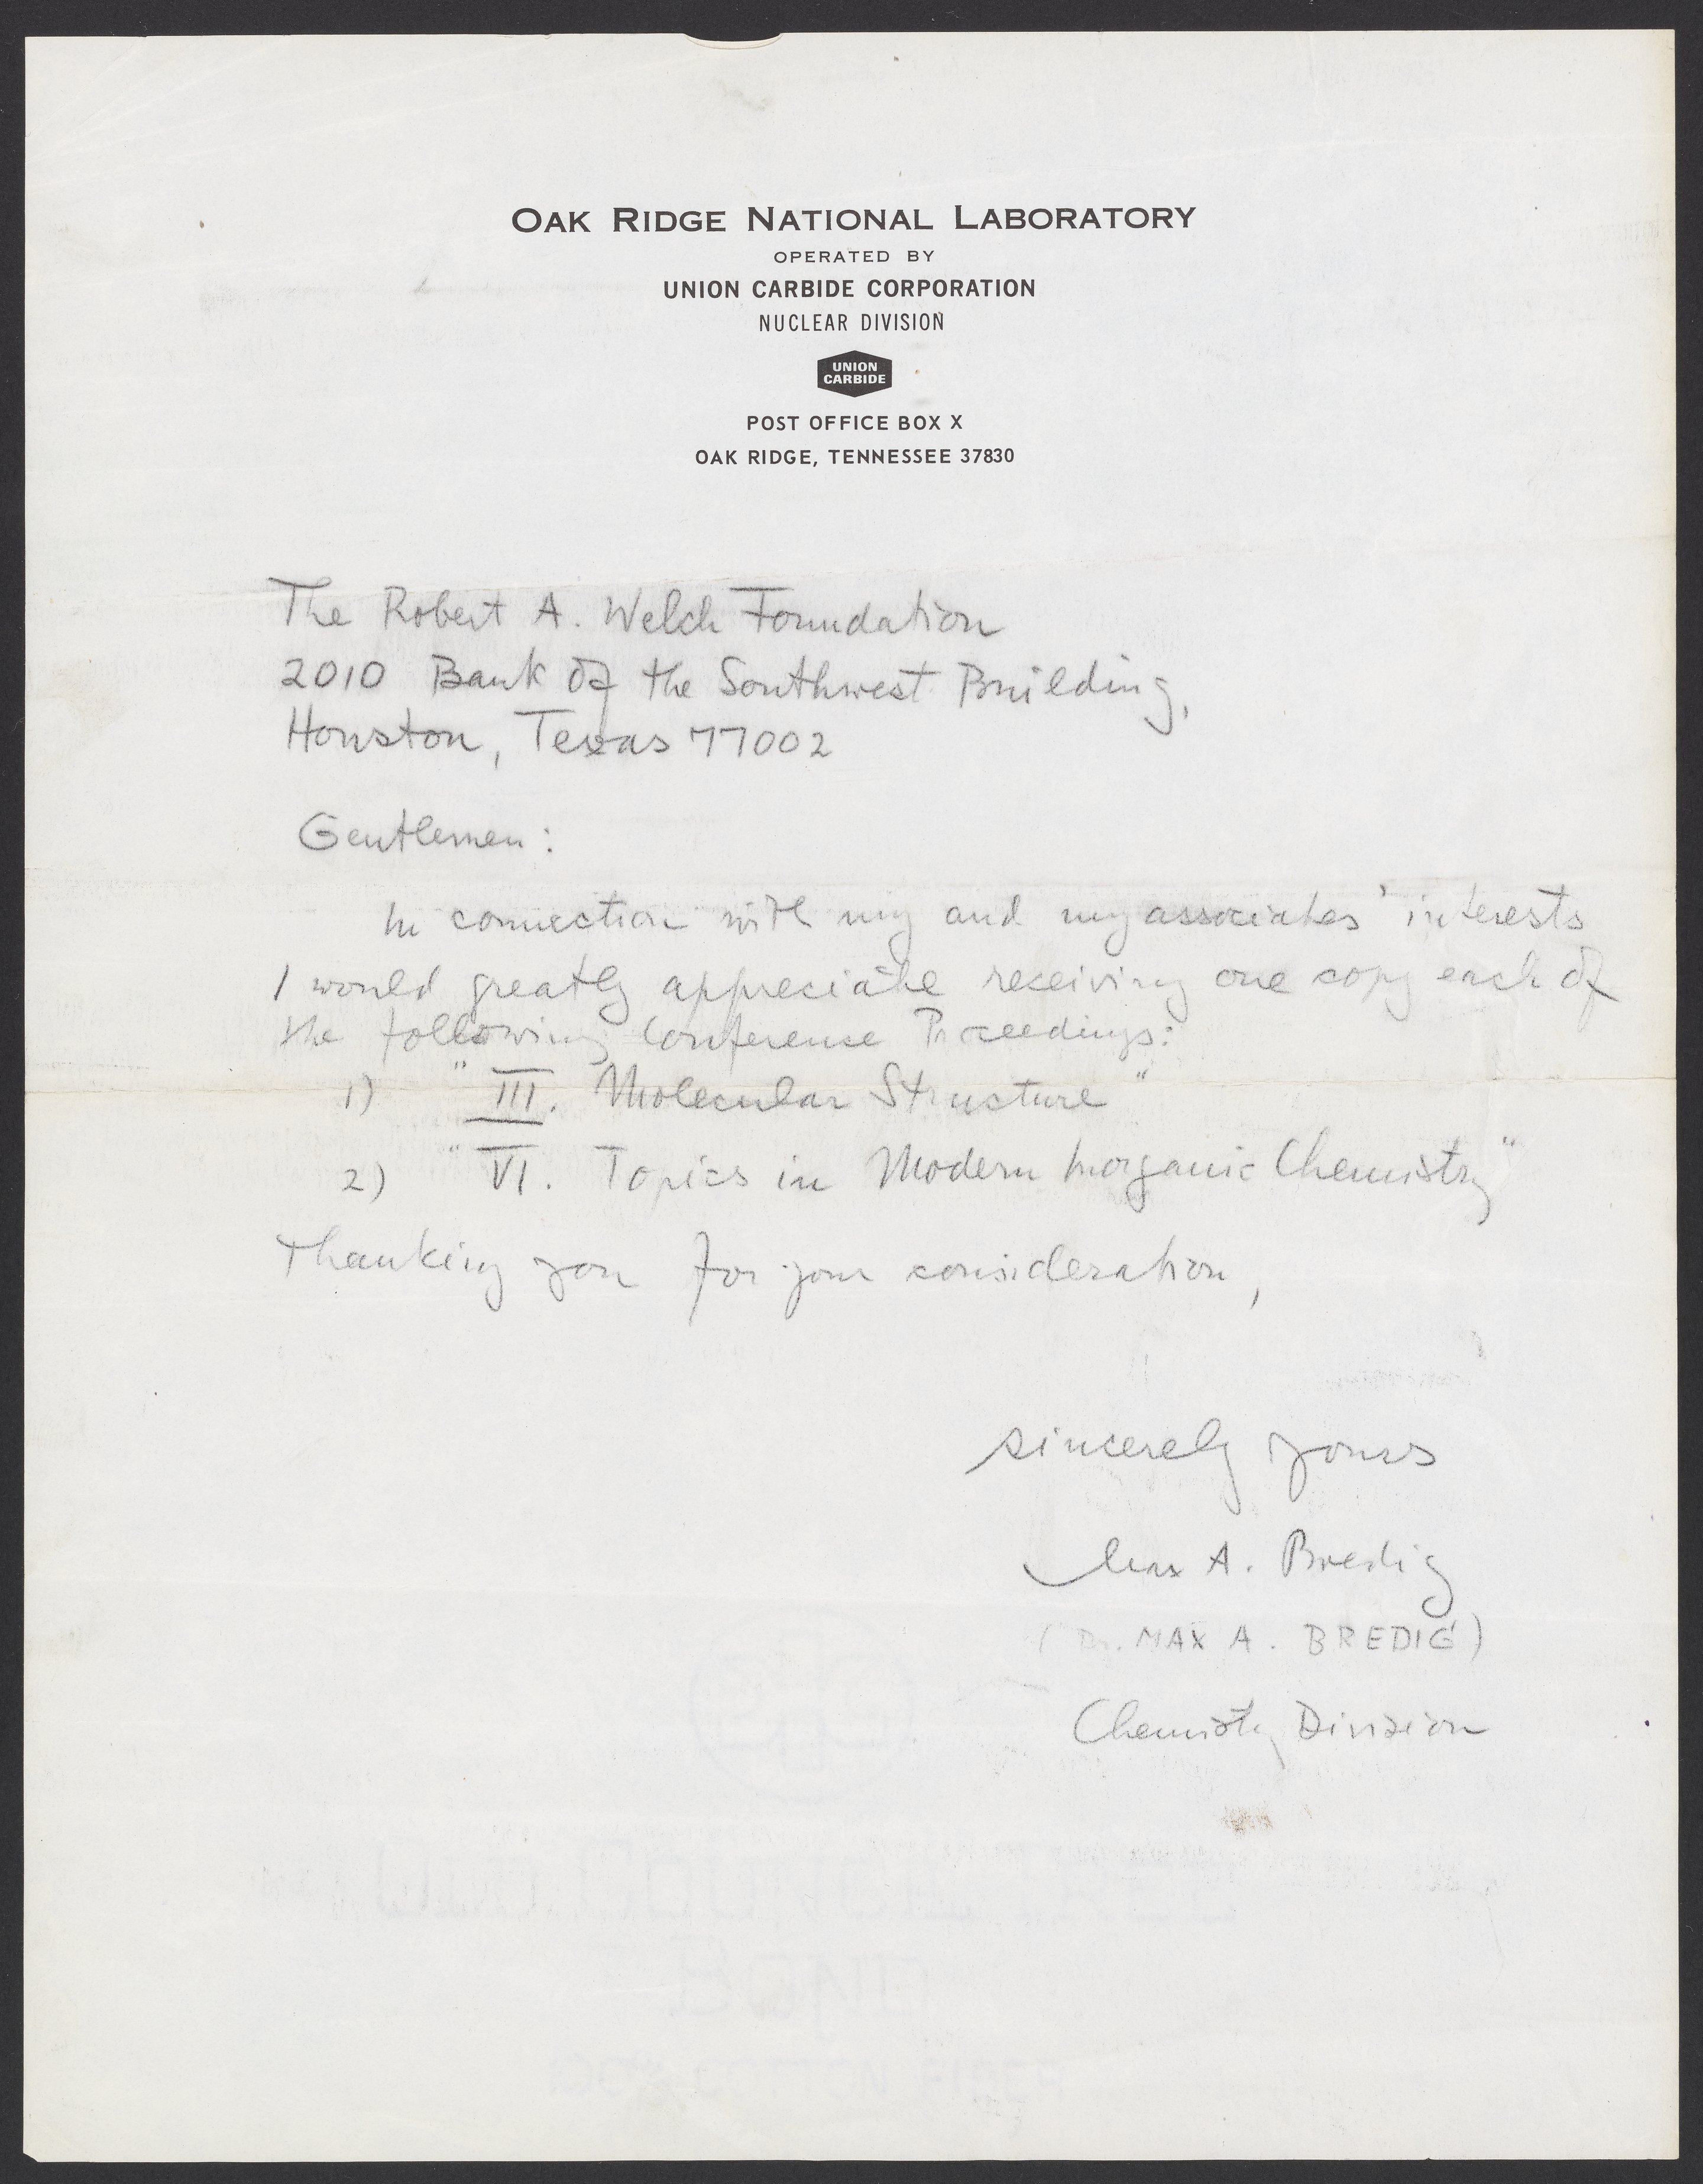 OAK RIDGE NATIONAL LABORATORY
OPERATED BY
UNION CARBIDE CORPORATION
NUCLEAR DIVISION
UNION
CARBIDE
POST OFFICE BOX X
OAK RIDGE, TENNESSEE 37830
The Robert A. Welch Foundation
2010 Bank of the Southwest Building,
Houston, Texas 77002
Gentlemen:
In connection with my and my associates' interests
I would greatly appreciate receiving one copy each of
the following Conference Proceedings:
1) "III. Molecular Structure"
2) "VI. Topics in Modern Inorganic Chemistry"
Thanking you for your consideration,
sincerely yours
Max A. Bredig
(Dr. MAX A. BREDIG)
Chemistry Division